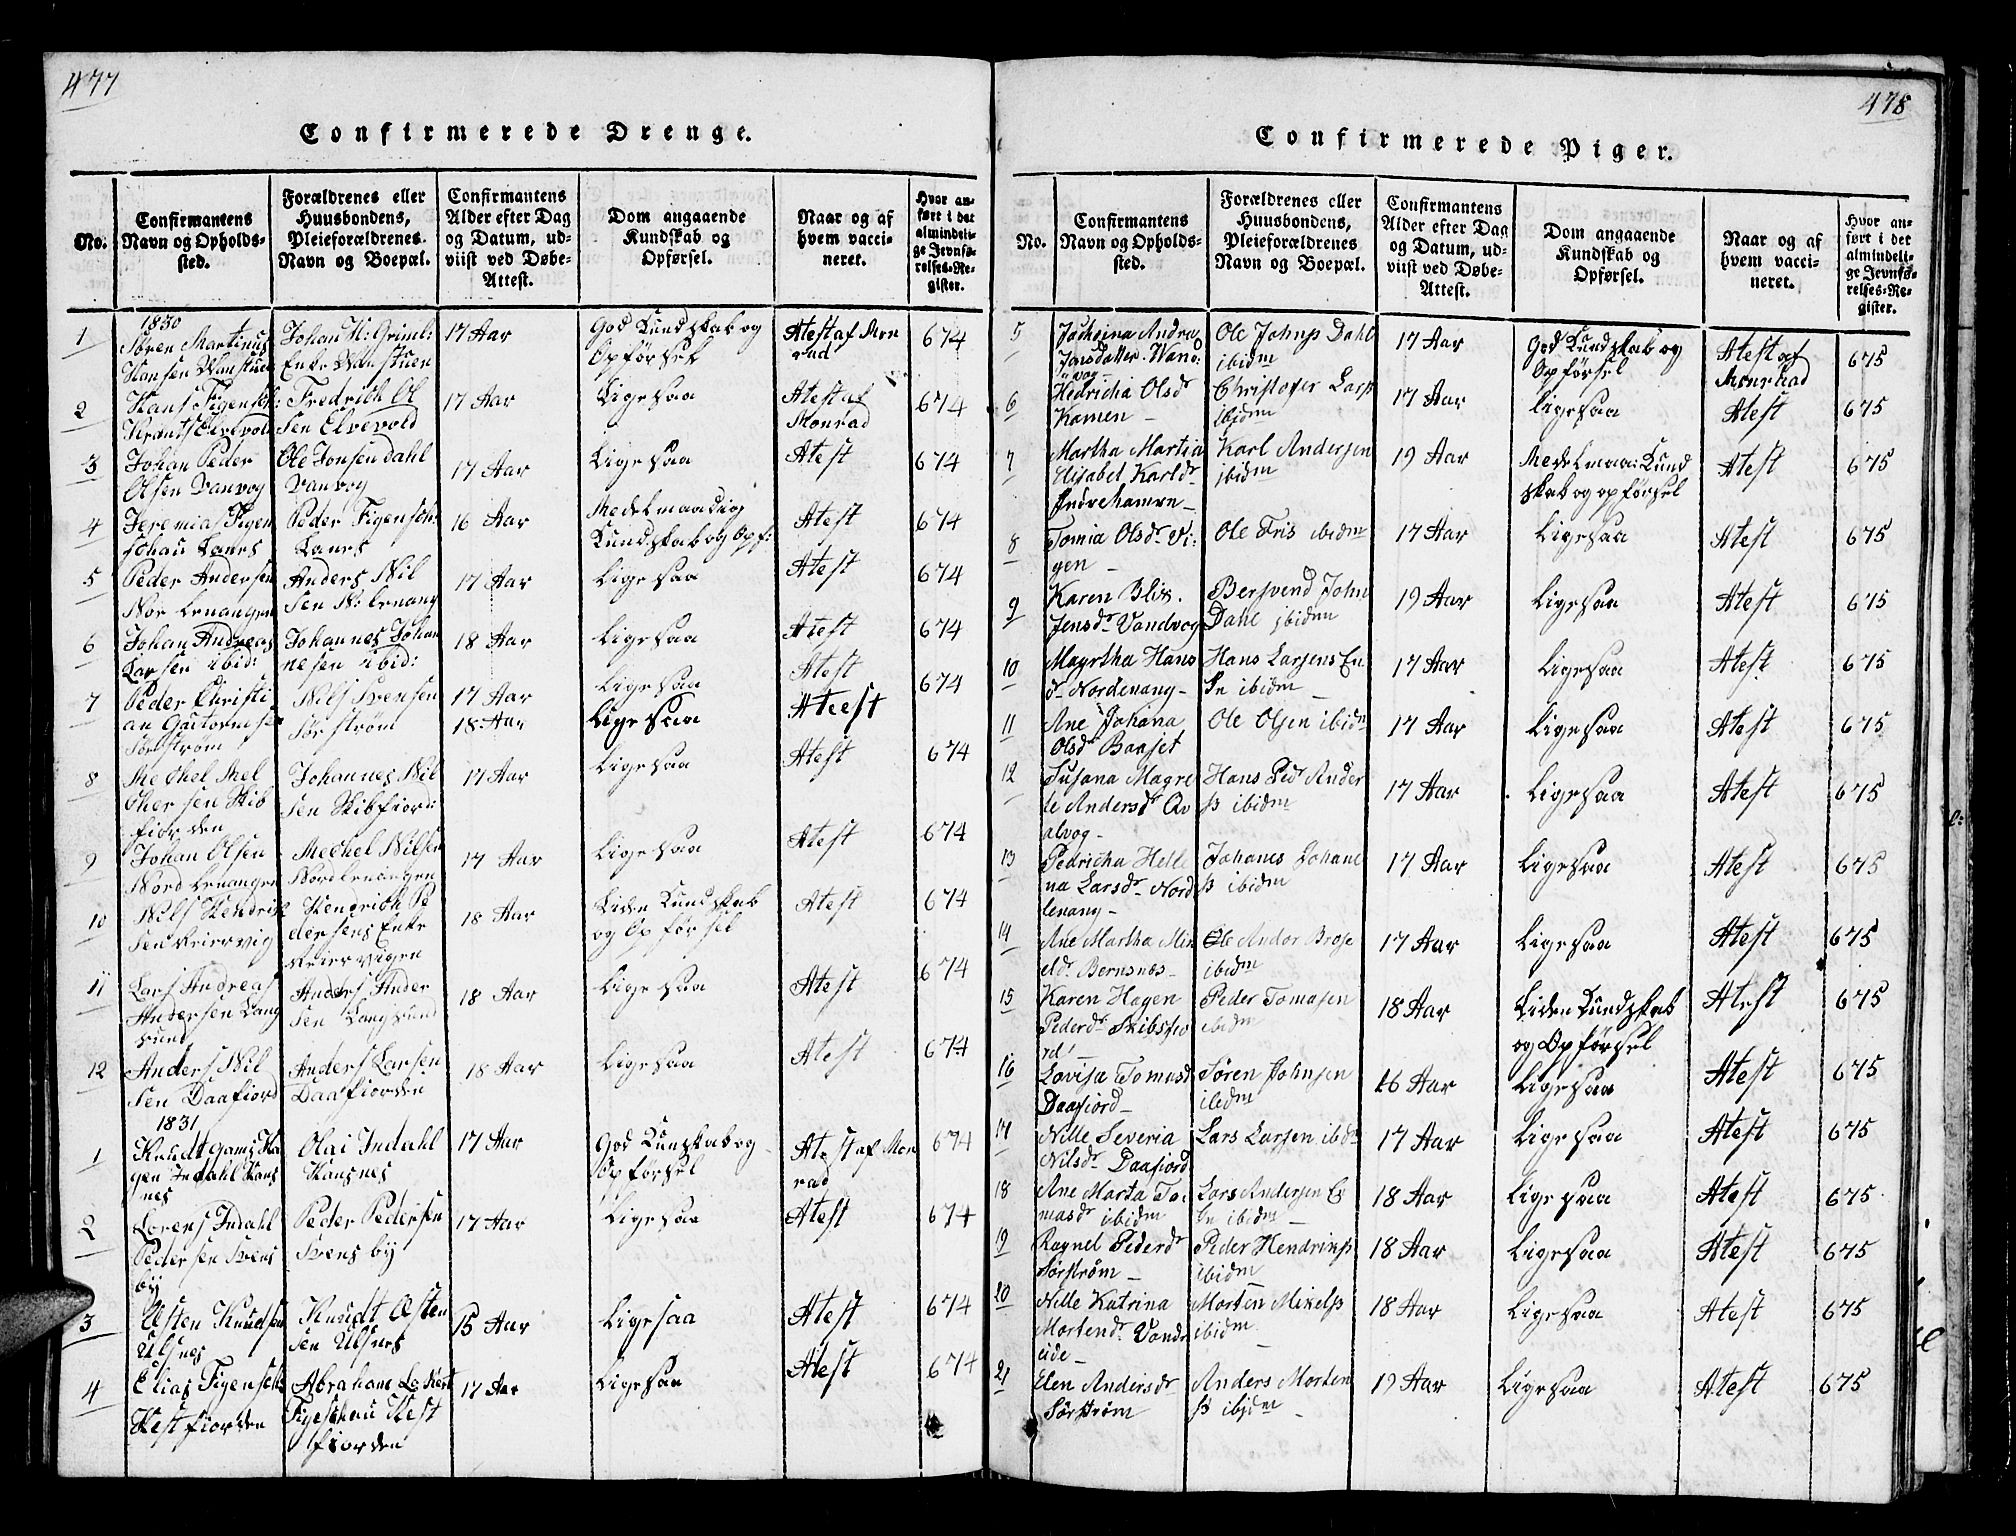 477
Confirmerede Drenge.
No.
Confirmantens
Navn og Opholds-
sted.
Forældrenes eller
Huusbondens,
Pleieforældrenes
Navn og Boepæl.
Confirmantens
Alder efter Dag
og Datum, ud-
viist ved Døbe-
Attest.
Dom angaaende
Kundskab og
Opførsel.
Naar og af
hvem vacci-
neret.
Hvor an-
ført i det
almindeli-
ge Jevnfø-
relses-Re-
gister.
1830
1
Søren Martinus
Hansen
Johan H: Griml:
Enke
17 Aar
God Kundskab og
Opførsel
Atest af Mon
rad
674
2
Hans Figensch:
Krants Elvevold
Fredrich Ol
sen Elvevold
17 Aar
Ligesaa
Atest af
Monrad
674
3
Johan Peder
Olsen Vanvog
Ole Jonsen Dahl
Vanvog
17 Aar
Ligesaa
Atest
674
4
Jeremias Figen
schau Lanes
Peder Figensch:
Lanes
16 Aar
Medelmaadig
Kundskab og Opf:
Atest
674
5
Peder Andersen
Nor Lenangen
Anders Nil
sen N: Lenang
17 Aar
Ligesaa
Atest
674
6
Johan Andreas
Larsen ibid:
Johannes Johan
nesen ibid:
18 Aar
Ligesaa
Atest
674
7
Peder Christi
an
Sørstrøm
Nils Svensen
Sørstrøm
17 Aar
18 Aar
Ligesaa
Ligesaa
Atest
Atest
674
8
Mechel Mel
cher sen Skib
fiorden
Johannes Nil
sen Skibfiord:
17 Aar
Ligesaa
Atest
674
9
Johan Olsen
Nord Lenangen
Mechel Nilsen
Nord Lenangen
17 Aar
Ligesaa
Atest
674
10
Nils Hendrik
sen Reiervig
Hendrich Pe
dersens Enke
Reiervigen
18 Aar
Liden Kundskab
og Opførsel
Atest
674
11
Lars Andreas
Andersen Lang
sund
Anders Ander
sen Langsund
18 Aar
Ligesaa
Atest
674
12
Anders Nil
sen Daafiord
Anders Larsen
Daafiorden
18 Aar
Ligesaa
Atest
674
1831
1
Knudt Ha
gen Indahl Hans
nes
Olai Indahl
Hansnes
17 Aar
God Kunskab og
Opførsel
Atest af Mon
rad
674
2
Lorens Indahl
Pedersen Svens
by
Peder Pedersen
Svensby
17 Aar
Ligesaa
Atest
674
3
Østen Knudsen
Ulsnes
Knudt Østen
sen Ulsnes
15 Aar
Ligesaa
Atest
674
4
Elias Figensch:
Kestfiorden
Abraham
Figeschau Kest
fiorden
17 Aar
Ligesaa
Atest
674
478
Confirmerede Piger.
No.
Confirmantens
Navn og Opholds-
sted.
Forældrenes eller
Huusbondens,
Pleieforældrenes
Navn og Boepæl.
Confirmantens
Alder efter Dag
og Datum, ud-
viist ved Døbe-
Attest.
Dom angaaende
Kundskab og
Opførsel.
Naar og af
hvem vacci-
neret.
Hvor an-
ført i det
almindeli-
ge Jevnfø-
relses-Re-
gister.
5
Andra
Jonsdatter
Ole Johnß Dahl
ibidm
17 Aar
God Kundskab og
Opførsel
Atest af
Monrad
675
6
Hedricha Olsdr
Kamen
Christofer Larß
ibidm
17 Aar
Ligesaa
Atest
675
7
Martha Martin
Elisabet Karldr
Karl Andersen
ibidm
19 Aar
Medelmaa: Kund
skab og opførsel
Atest
675
8
Tomia Olsdr Vi-
gen
Ole Fris ibidm
17 Aar
Ligesaa
Atest
675
9
Karen Blix.
Jensdr Vandvog
Bersvend John
Dahl ibidm
19 Aar
Ligesaa
Atest
675
10
Magrtha Hans
dr Nordenang
Hans Larsens En
ke ibidm
17 Aar
Ligesaa
Atest
675
11
Ane Johana
Olsdr
Ole Olsen ibidm
17 Aar
Ligesaa
Atest
675
12
Susana Magre
te Andersdr Qv
alvog
Hans Pedr Ander
ß ibidm
17 Aar
Ligesaa
Atest
675
13
Pedricha Hele
na Larsdr Nord
lenang
Johanes Johane
ß ibidm
17 Aar
Ligesaa
Atest
675
14
Ane Martha Min
eldr Bernsnes
Ole Andor Brose
ibidm
17 Aar
Ligesaa
Atest
675
15
Karen Hagen
Pederdr Skibsfio
rd
Peder Tomasen
ibidm
18 Aar
Liden Kundskab
og Opførsel
Atest
675
16
Lovisa Tomasd
Daafiord
Søren Johnsen
ibidm
16 Aar
Ligesaa
Atest
675
17
Nille Severia
Nilsdr Daafiord
Lars Larsen ibidm
17 Aar
Ligesaa
Atest
675
18
Ane Marta To-
masdr ibidm
Lars Andersen E
ke ibidm
18 Aar
Ligesaa
Atest
675
19
Ragnel Pederdr
Sørstrøm
Peder Hendrikß
ibidm
18 Aar
Ligesaa
Atest
675
20
Nille Katrina
Mortendr Vand
eide
Morten Mikelß
ibidm
18 Aar
Ligesaa
Atest
675
21
Elen Andersdr
Sørstrøm
Anders Morten
ß ibidm
19 Aar
Ligesaa
Atest
675